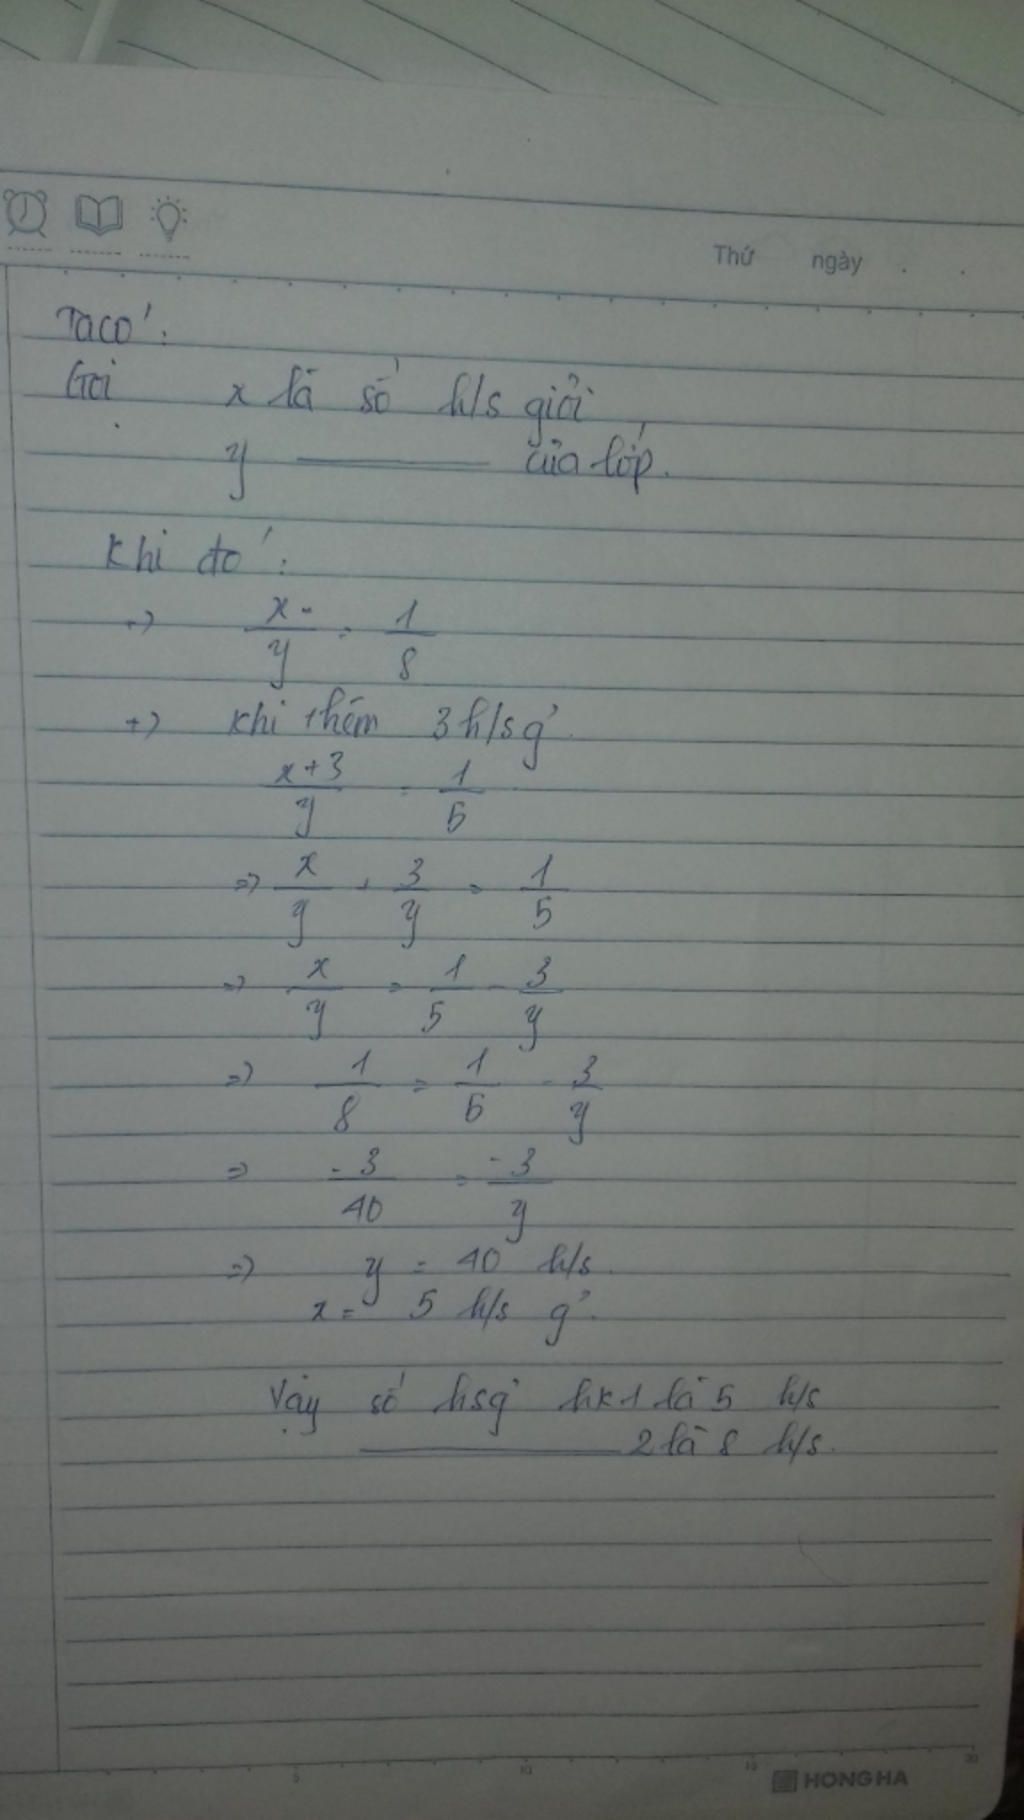 Thứ ngày
Ta có:
Gọi x là số h/s giỏi
y ———— của lớp.
Khi đó:
+) x/y = 1/8
+) Khi thêm 3 h/s g̉.
x+3/y = 1/5
=> x/y + 3/y = 1/5
=> x/y = 1/5 - 3/y
=> 1/8 = 1/5 - 3/y
=> -3/40 = -3/y
=> y = 40 h/s.
x = 5 h/s g̉.
Vậy số hsg̉ hk1 là 5 h/s
———— 2 là 8 h/s.
5 10 15 20
HONG HA